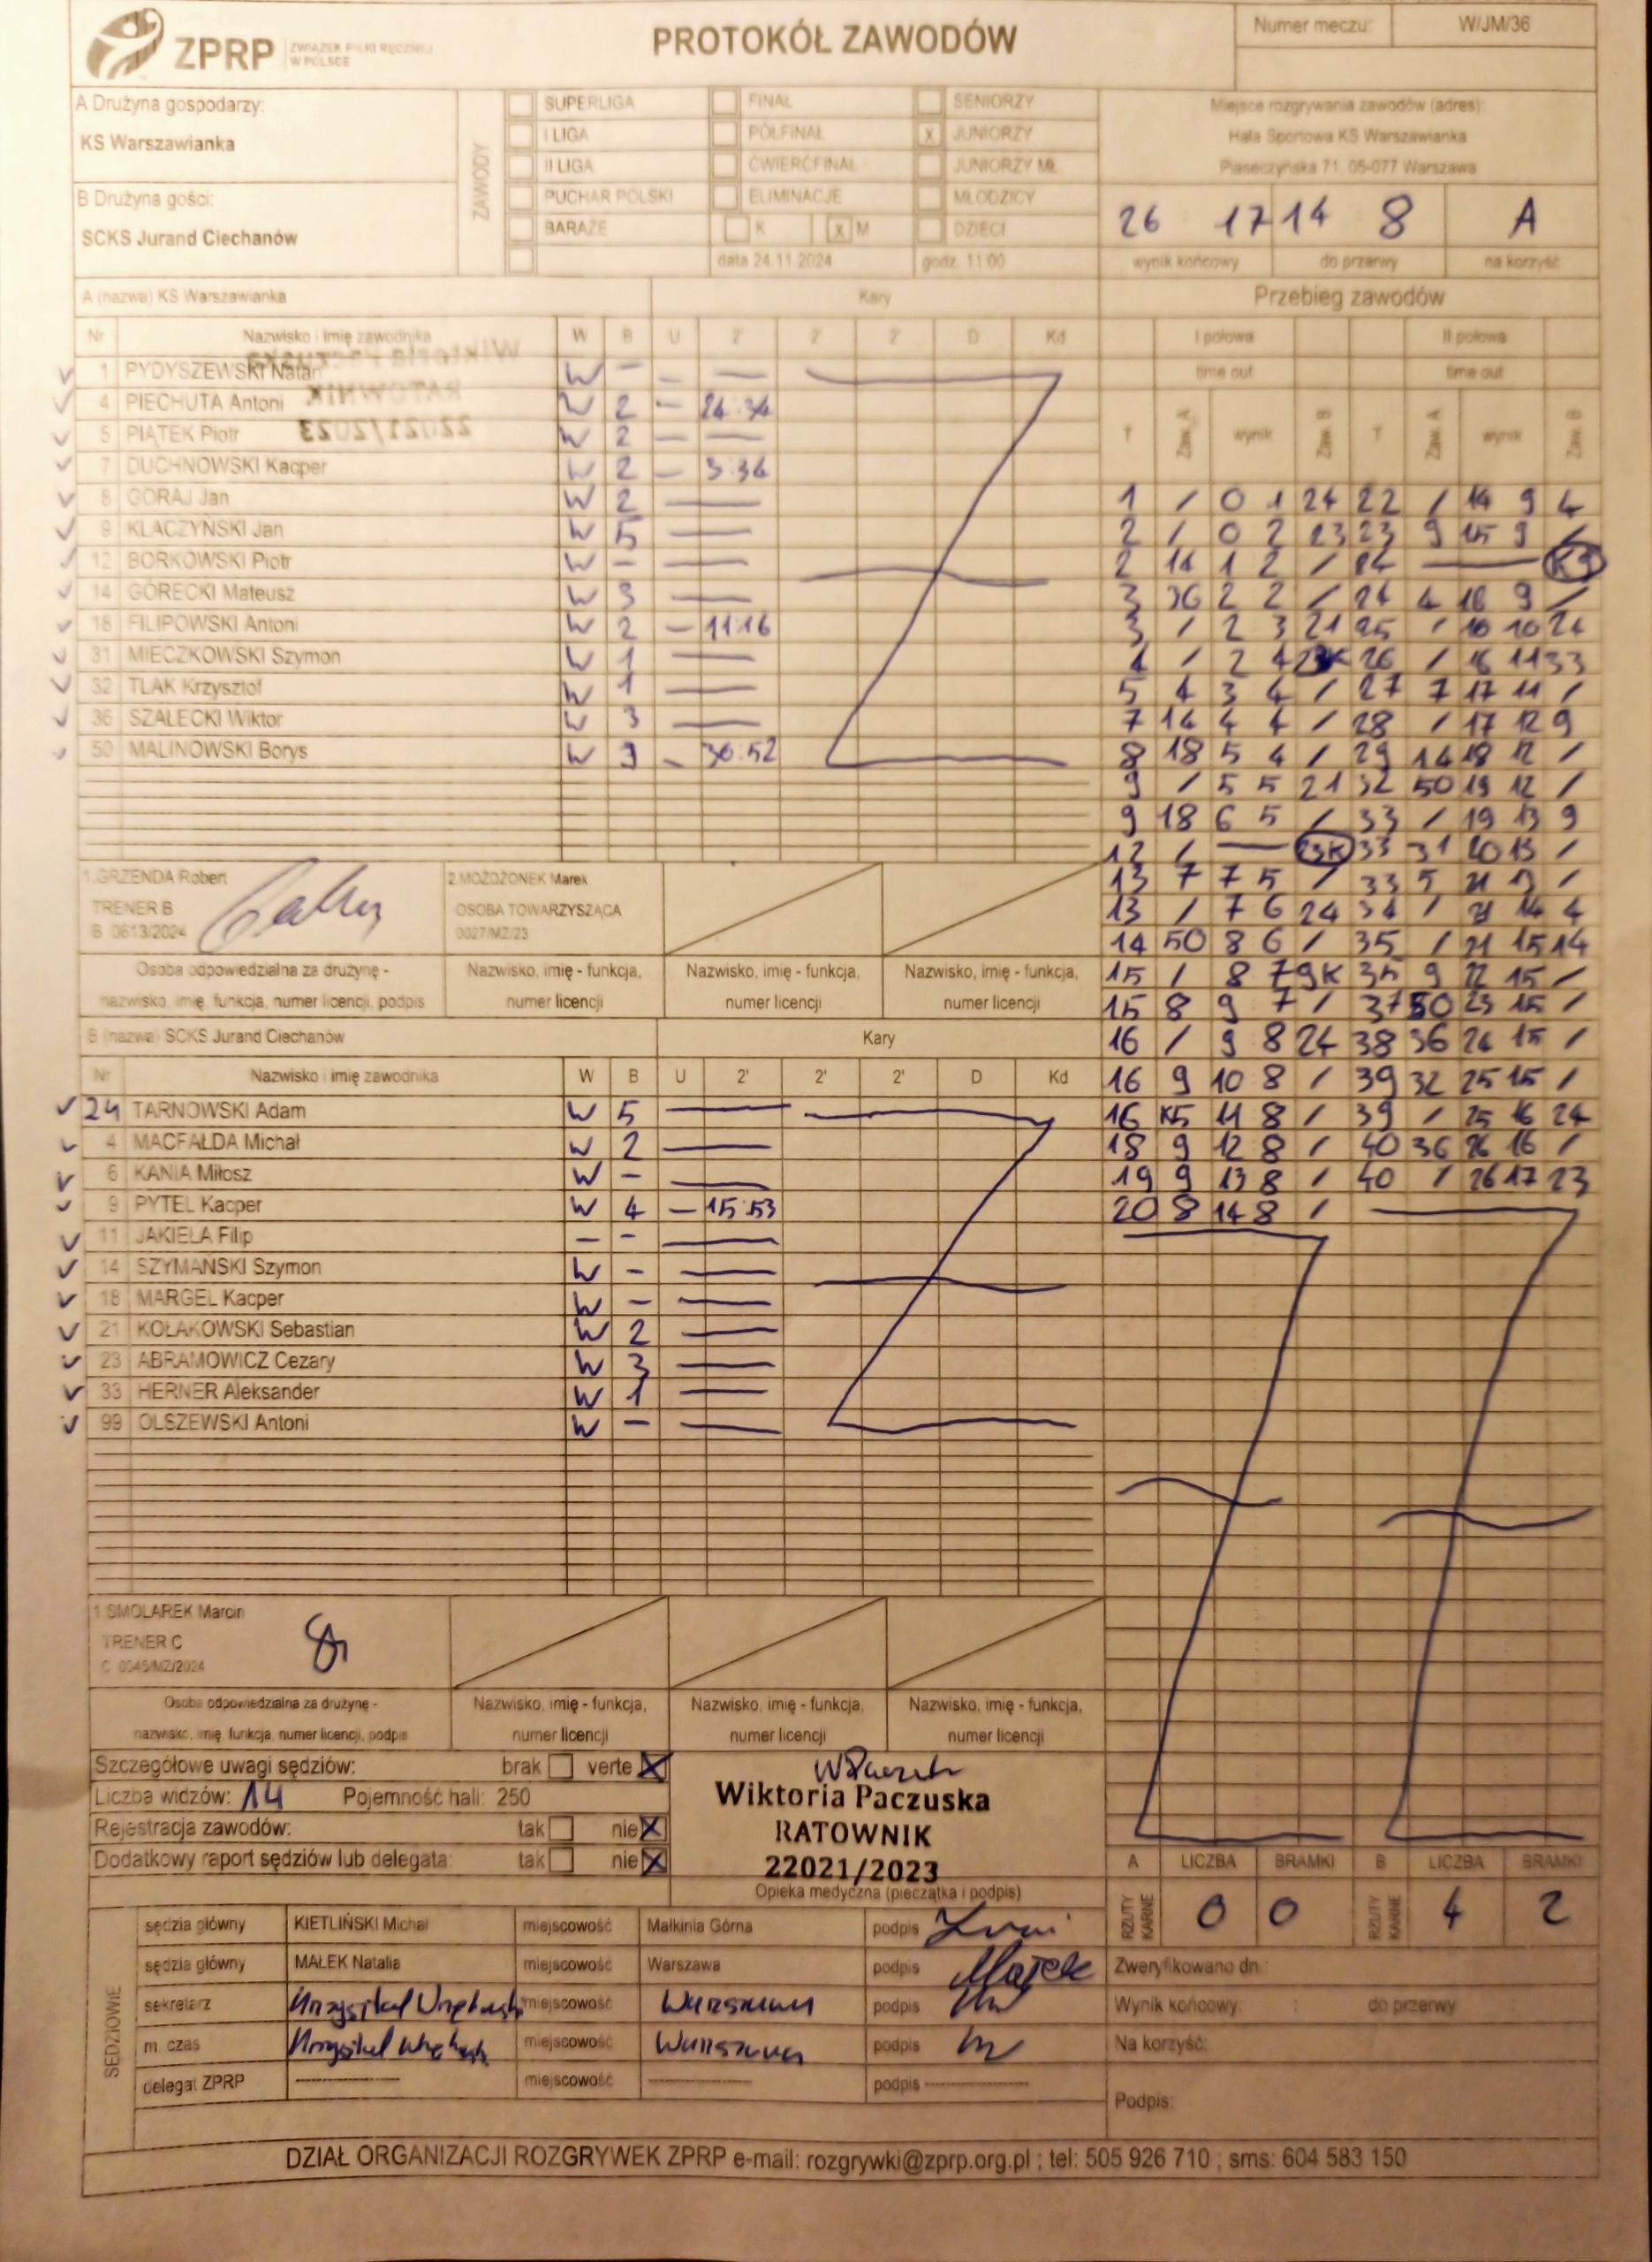 ZPRP ZWIĄZEK PIŁKI RĘCZNEJ W POLSCE
PROTOKÓŁ ZAWODÓW
Numer meczu: W/JM/36
A Drużyna gospodarzy:
KS Warszawianka
B Drużyna gości:
SCKS Jurand Ciechanów
ZAWODY
SUPERLIGA FINAŁ SENIORZY
I LIGA PÓŁFINAŁ X JUNIORZY
II LIGA ĆWIERĆFINAŁ JUNIORZY MŁ.
PUCHAR POLSKI ELIMINACJE MŁODZICY
BARAŻE K X M DZIECI
data 24.11.2024 godz. 11:00
Miejsce rozgrywania zawodów (adres):
Hala Sportowa KS Warszawianka
Piaseczyńska 71, 05-077 Warszawa
26 17 14 8 A
wynik końcowy do przerwy na korzyść
A (nazwa) KS Warszawianka Kary
Nr Nazwisko i imię zawodnika W B U 2' 2' 2' D Kd
1 PYDYSZEWSKI Natan W - - -
4 PIECHUTA Antoni W 2 - 24:34
5 PIĄTEK Piotr W 2 - -
7 DUCHNOWSKI Kacper W 2 - 3:36
8 GÓRAJ Jan W 2 -
9 KLACZYŃSKI Jan W 5 -
12 BORKOWSKI Piotr W - -
14 GÓRECKI Mateusz W 3 -
18 FILIPOWSKI Antoni W 2 - 11:16
31 MIECZKOWSKI Szymon W 1 -
32 TLAK Krzysztof W 1 -
36 SZAŁECKI Wiktor W 3 -
50 MALINOWSKI Borys W 3 - 30:52
1.GRZENDA Robert
TRENER B
B 0613/2024
2.MOŻDŻONEK Marek
OSOBA TOWARZYSZĄCA
0027/MZ/23
Osoba odpowiedzialna za drużynę -
nazwisko, imię, funkcja, numer licencji, podpis
Nazwisko, imię - funkcja,
numer licencji
Nazwisko, imię - funkcja,
numer licencji
Nazwisko, imię - funkcja,
numer licencji
B (nazwa) SCKS Jurand Ciechanów Kary
Nr Nazwisko i imię zawodnika W B U 2' 2' 2' D Kd
24 TARNOWSKI Adam W 5 -
4 MACFAŁDA Michał W 2 -
6 KANIA Miłosz W - -
9 PYTEL Kacper W 4 - 15:53
11 JAKIELA Filip - - -
14 SZYMAŃSKI Szymon W - -
18 MARGEL Kacper W - -
21 KOŁAKOWSKI Sebastian W 2 -
23 ABRAMOWICZ Cezary W 3 -
33 HERNER Aleksander W 1 -
99 OLSZEWSKI Antoni W - -
1 SMOLAREK Marcin
TRENER C
C 0045/MZ/2024
Osoba odpowiedzialna za drużynę -
nazwisko, imię, funkcja, numer licencji, podpis
Nazwisko, imię - funkcja,
numer licencji
Nazwisko, imię - funkcja,
numer licencji
Nazwisko, imię - funkcja,
numer licencji
Przebieg zawodów
I połowa II połowa
time out time out
T Zaw. A wynik Zaw. B T Zaw. A wynik Zaw. B
1 / 0 1 24 22 / 14 9 4
2 / 0 2 23 23 9 15 9 /
2 14 1 2 / 24 — K9
3 36 2 2 / 24 4 16 9 /
3 / 2 3 21 25 / 16 10 24
4 / 2 4 23K 26 / 16 11 33
5 4 3 4 / 27 7 17 11 /
7 14 4 4 / 28 / 17 12 9
8 18 5 4 / 29 14 18 12 /
9 / 5 5 21 32 50 19 12 /
9 18 6 5 / 33 / 19 13 9
12 / — 23K 33 31 20 13 /
13 7 7 5 / 33 5 21 13 /
13 / 7 6 24 34 / 21 14 4
14 50 8 6 / 35 / 21 15 14
15 / 8 7 9K 35 9 22 15 /
15 8 9 7 / 37 50 23 15 /
16 / 9 8 24 38 36 24 15 /
16 9 10 8 / 39 32 25 15 /
16 K5 11 8 / 39 / 25 16 24
18 9 12 8 / 40 36 26 16 /
19 9 13 8 / 40 / 26 17 23
20 8 14 8 /
Szczegółowe uwagi sędziów: brak verte X
Liczba widzów: 14 Pojemność hali: 250
Rejestracja zawodów: tak nie X
Dodatkowy raport sędziów lub delegata: tak nie X
Wiktoria Paczuska
RATOWNIK
22021/2023
Opieka medyczna (pieczątka i podpis)
A LICZBA BRAMKI B LICZBA BRAMKI
RZUTY KARNE 0 0 RZUTY KARNE 4 2
SĘDZIOWIE
sędzia główny KIETLIŃSKI Michał miejscowość Małkinia Górna podpis
sędzia główny MAŁEK Natalia miejscowość Warszawa podpis Małek
sekretarz Krzysztof miejscowość Warszawa podpis
m. czas Krzysztof miejscowość Warszawa podpis
delegat ZPRP ---------- miejscowość ---------- podpis ----------
Zweryfikowano dn.:
Wynik końcowy: : do przerwy :
Na korzyść:
Podpis:
DZIAŁ ORGANIZACJI ROZGRYWEK ZPRP e-mail: rozgrywki@zprp.org.pl ; tel: 505 926 710 ; sms: 604 583 150